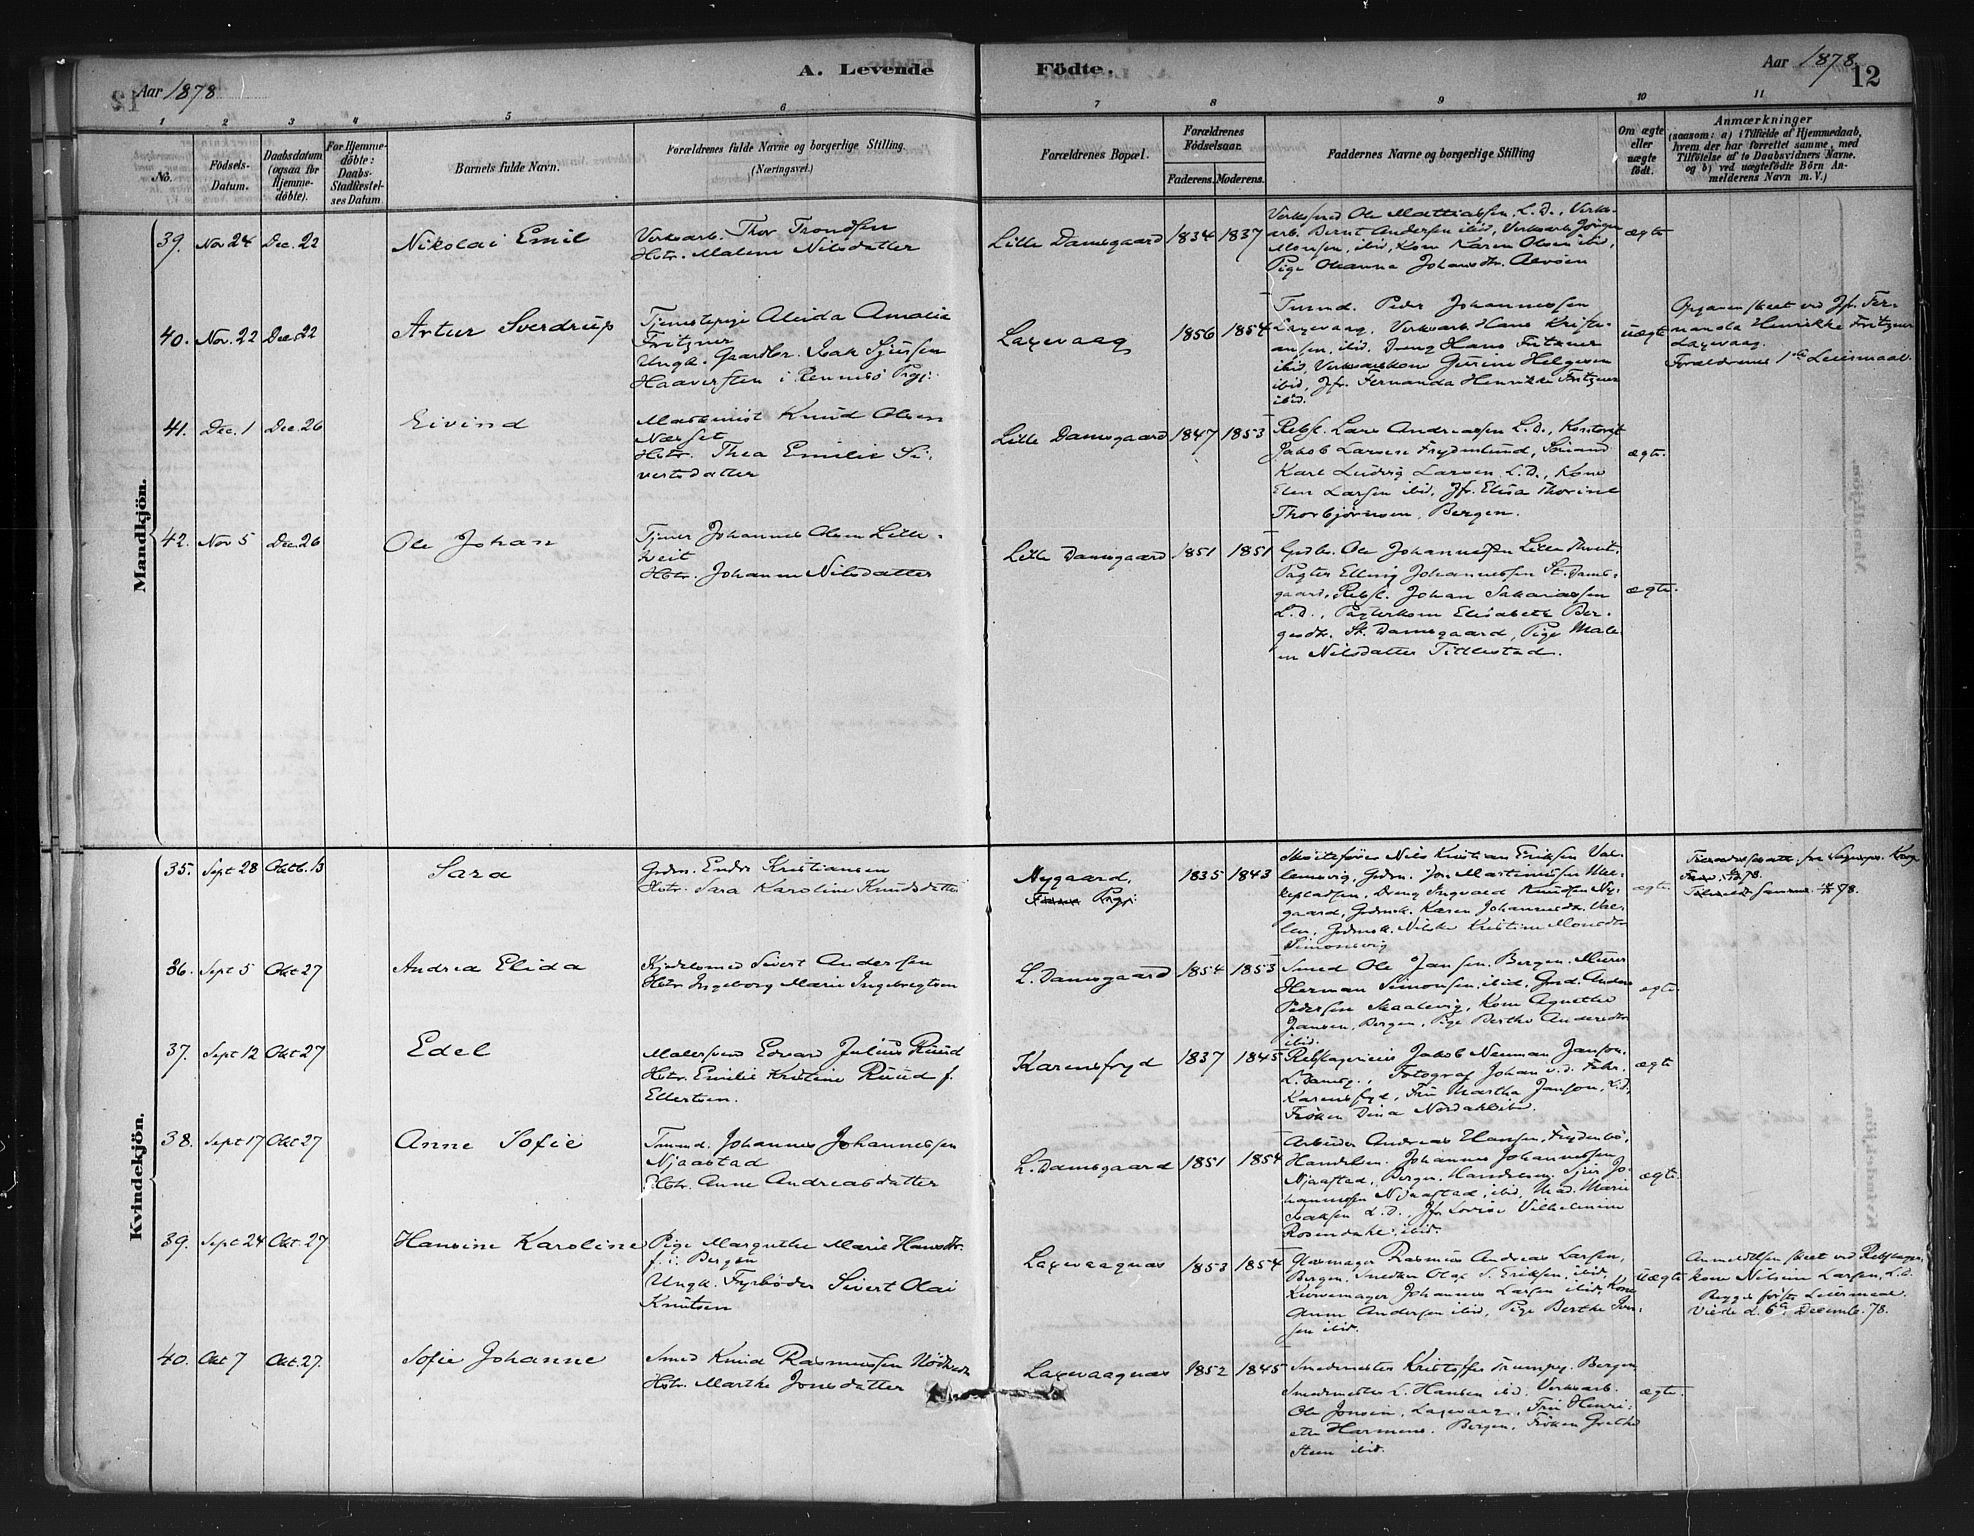 Aar 1878
A. Levende
Födte.
Aar 1878.
12
1 2 3 4 5 6 7 8 9 10 11
No.
Födsels-Datum.
Daabsdatum (ogsaa for Hjemme-döbte).
For Hjemme-döbte: Daabs-Stadfæstel-ses Datum.
Barnets fulde Navn.
Forældrenes fulde Navne og borgerlige Stilling. (Næringsvei.)
Forældrenes Bopæl.
Forældrenes Födselsaar.
Faderens. Moderens.
Faddernes Navne og borgerlige Stilling
Om ægte eller uægte födt.
Anmærkninger
(saasom: a) i Tilfælde af Hjemmedaab, hvem der har forrettet samme, med Tilföielse af to Daabsvidners Navne. og b) ved uægtefödte Börn An-melderens Navn m. V.)
Mandkjön.
39. Nov 24 Dec. 22 Nikolai Emil
Verksarb. Thor Trondsen
Hstr. Malene Nilsdatter
Lille Damsgaard 1834 1837
Verksmed Ole Mattiassen, L. D., Verks-
arb. Bernt Andersen ibid, Verksarb. Jörgen
Monsen, ibid, Kone Karen Olsen ibid,
Pige Oleanna Johansdtr. Alvöen
ægte
40. Nov. 22 Dec. 22 Artur Sverdrup
Tjenestepige Aleida Amalia
Fritzner
Ungk. Gaardbr. Isak Sjursen
Haaversten i Rennesö Pgj:
Laxevaag 1856 1854
Tmmd. Peder Johannessen
Laxevaag, Verksarb. Hans Kristi-
ansen, ibid. Dreng Hans Fritzner
ibid, Verksarbkone Gurine Helgesen
ibid, Jfr. Fernanda Henrikke Fritzner
ibid.
uægte
Opgaven skeet ved Jfr. Fer-
nanda Henrikke Fritzner
Laxevaag.
Forældrenes 1ste Leiermaal.
41. Dec. 1 Dec. 26 Eivind
Maskinist Knud Olsen
Næsset
Hstr. Thea Emilie Si-
vertsdatter
Lille Damsgaard 1847 1853
Rebsl. Lars Andreassen L. D., Kontorist
Jakob Larsen Frydenlund, Sömand
Karl Ludvig Larsen, L. D., Kone
Elen Larsen ibid, Jfr. Elisa Thorine
Thorbjörnsen, Bergen.
ægte.
42. Nov 5 Dec. 26 Ole Johan
Tjener Johannes Olsen Lille-
tveit
Hstr. Johanne Nilsdatter
Lille Damsgaard 1851 1851
Grdbr. Ole Johannessen Lille Tveit.
Pagter Elling Johannessen St. Dams-
gaard, Rebsl. Johan Sakariassen
L. D., Pagterkone Elisabeth Ber-
gesdtr. St. Damsgaard, Pige Male-
ne Nilsdatter Tittlestad.
ægte.
Kvindekjön.
35. Sept 28 Oktb. 13 Sara
Grdm. Endre Kristiansen
Hstr. Sara Karoline Knudsdatter
Nygaard,
Pgj:
1835 1843
Sköitefören Nils Kristian Eriksen Val-
lemsvig, Grdm. Jon Martinussen
Dreng Ingvald Knudsen Ny-
gaard, Grdmsk. Karen Johannesdtr. Val-
len, Grdmsk. Nilske Kristine Monsdtr
Simonsvig
ægte.
78.
samme 78.
36. Sept 5 Okt 27 Andrea Elida
Kjedelsmed Sivert Andersen
Hstr. Ingeborg Marie Ingebregtsen
L. Damsgaard 1854 1853
Smed Ole Jansen, Bergen, Murer
Herman Simonsen, ibid, Grd. Anders
Pedersen Skaalevig, Kone Agnethe
Jansen, Bergen, Pige Berthe Andersdtr
ibid.
ægte.
37. Sept 12 Okt 27 Edel
Malersvend Edvard Julius Ruud
Hstr. Emilie Kristine Ruud f.
Ellertsen.
Karensfryd 1837 1845
Rebslagerieier Jakob Neuman Janson,
L. Damsg., Fotograf Johan v. d. Fehr,
Karensfryd, Fru Martha Janson, L. D.
Fröken Dina Nordahl ibid.
ægte
38. Sept 17 Okt 27 Anne Sofie
Tmmd. Johannes Johannessen
Njaastad
Hstr. Anne Andreasdatter
L. Damsgaard 1851 1854
Arbeider Andreas Hansen, Frydenbö,
Handelsm. Johannes Johannessen
Njaastad, Bergen, Handelsm. Sjur Jo-
hannessen Njaastad, ibid, Mad. Marie
Isaksen L. D., Jfr. Lovise Vilhelmine
Rosendahl, ibid.
ægte.
39. Sept 24 Okt. 27 Hansine Karoline
Pige Margrethe Marie Hansdtr.
f. i. Bergen
Ungk. Fyrböder Sivert Olai
Knutsen
Laxevaagnæs 1853 1854
Glasmager Rasmus Andreas Larsen,
Bergen, Smedken Oluf S. Eriksen, ibid,
Kurvemager Johannes Larsen ibid, Kone
Anne Andersen ibid, Pige Berthe Jen-
sen ibid.
uægte
Anmeldelsen skeet ved Rebslager-
kone Nilsine Larsen, L. D.
Begges förste Leiermaal.
Viede d. 6te Decembr. 78.
40. Okt 7 Okt. 27. Sofie Johanne
Smed Knud Rasmussen Nödtvedt
Hstr. Marthe Jonsdatter
Laxevaagnæs 1852 1845
Smedmester Kristoffer Trumpy. Bergen
Smedmester L. Hansen ibid. Verksarb.
Ole Jonsen, Laxevaag, Fru Henri-
ette Harmens, Bergen, Fröken Grethe
Steen ibid.
ægte.